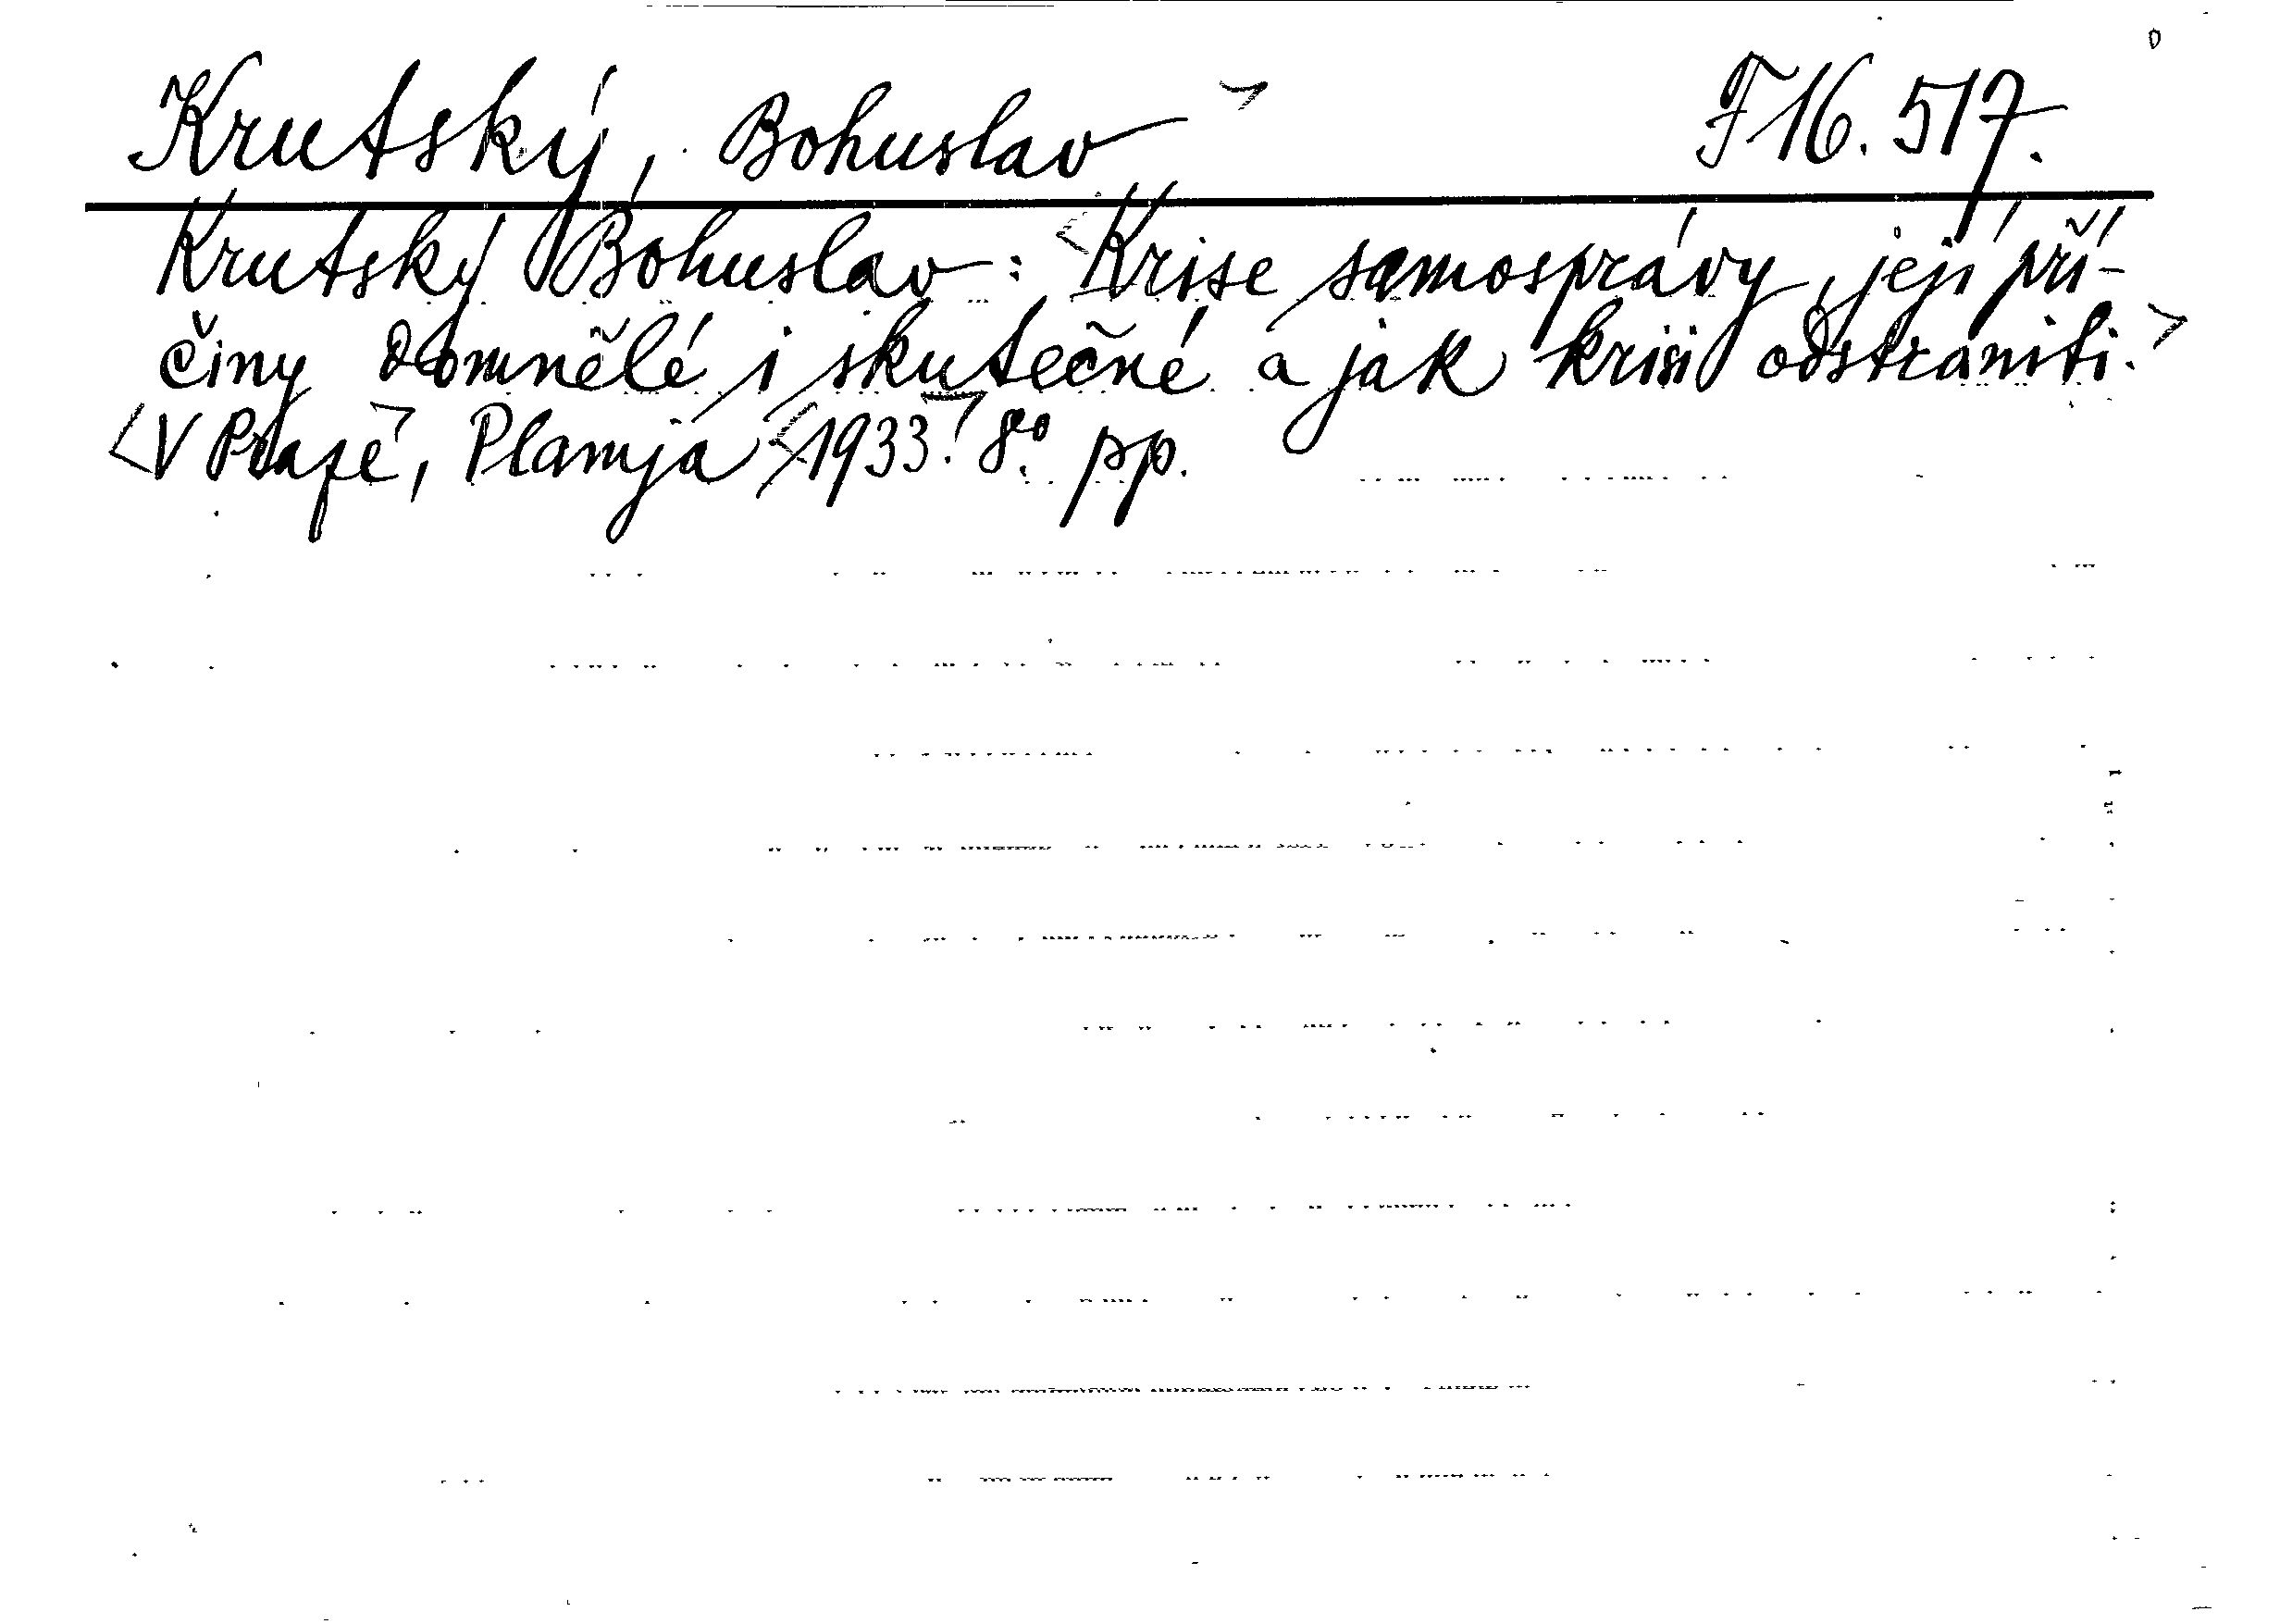 Krutský, Bohuslav F 16.517.
Krutský Bohuslav: Krise samosprávy, její pří-
činy domnělé i skutečné a jak krisi odstraniti.
V Praze, Plamja 1933. 8° pp.